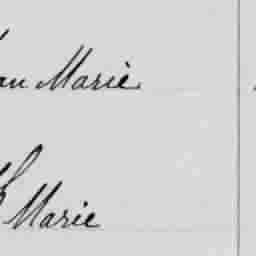 an Marie
Marie